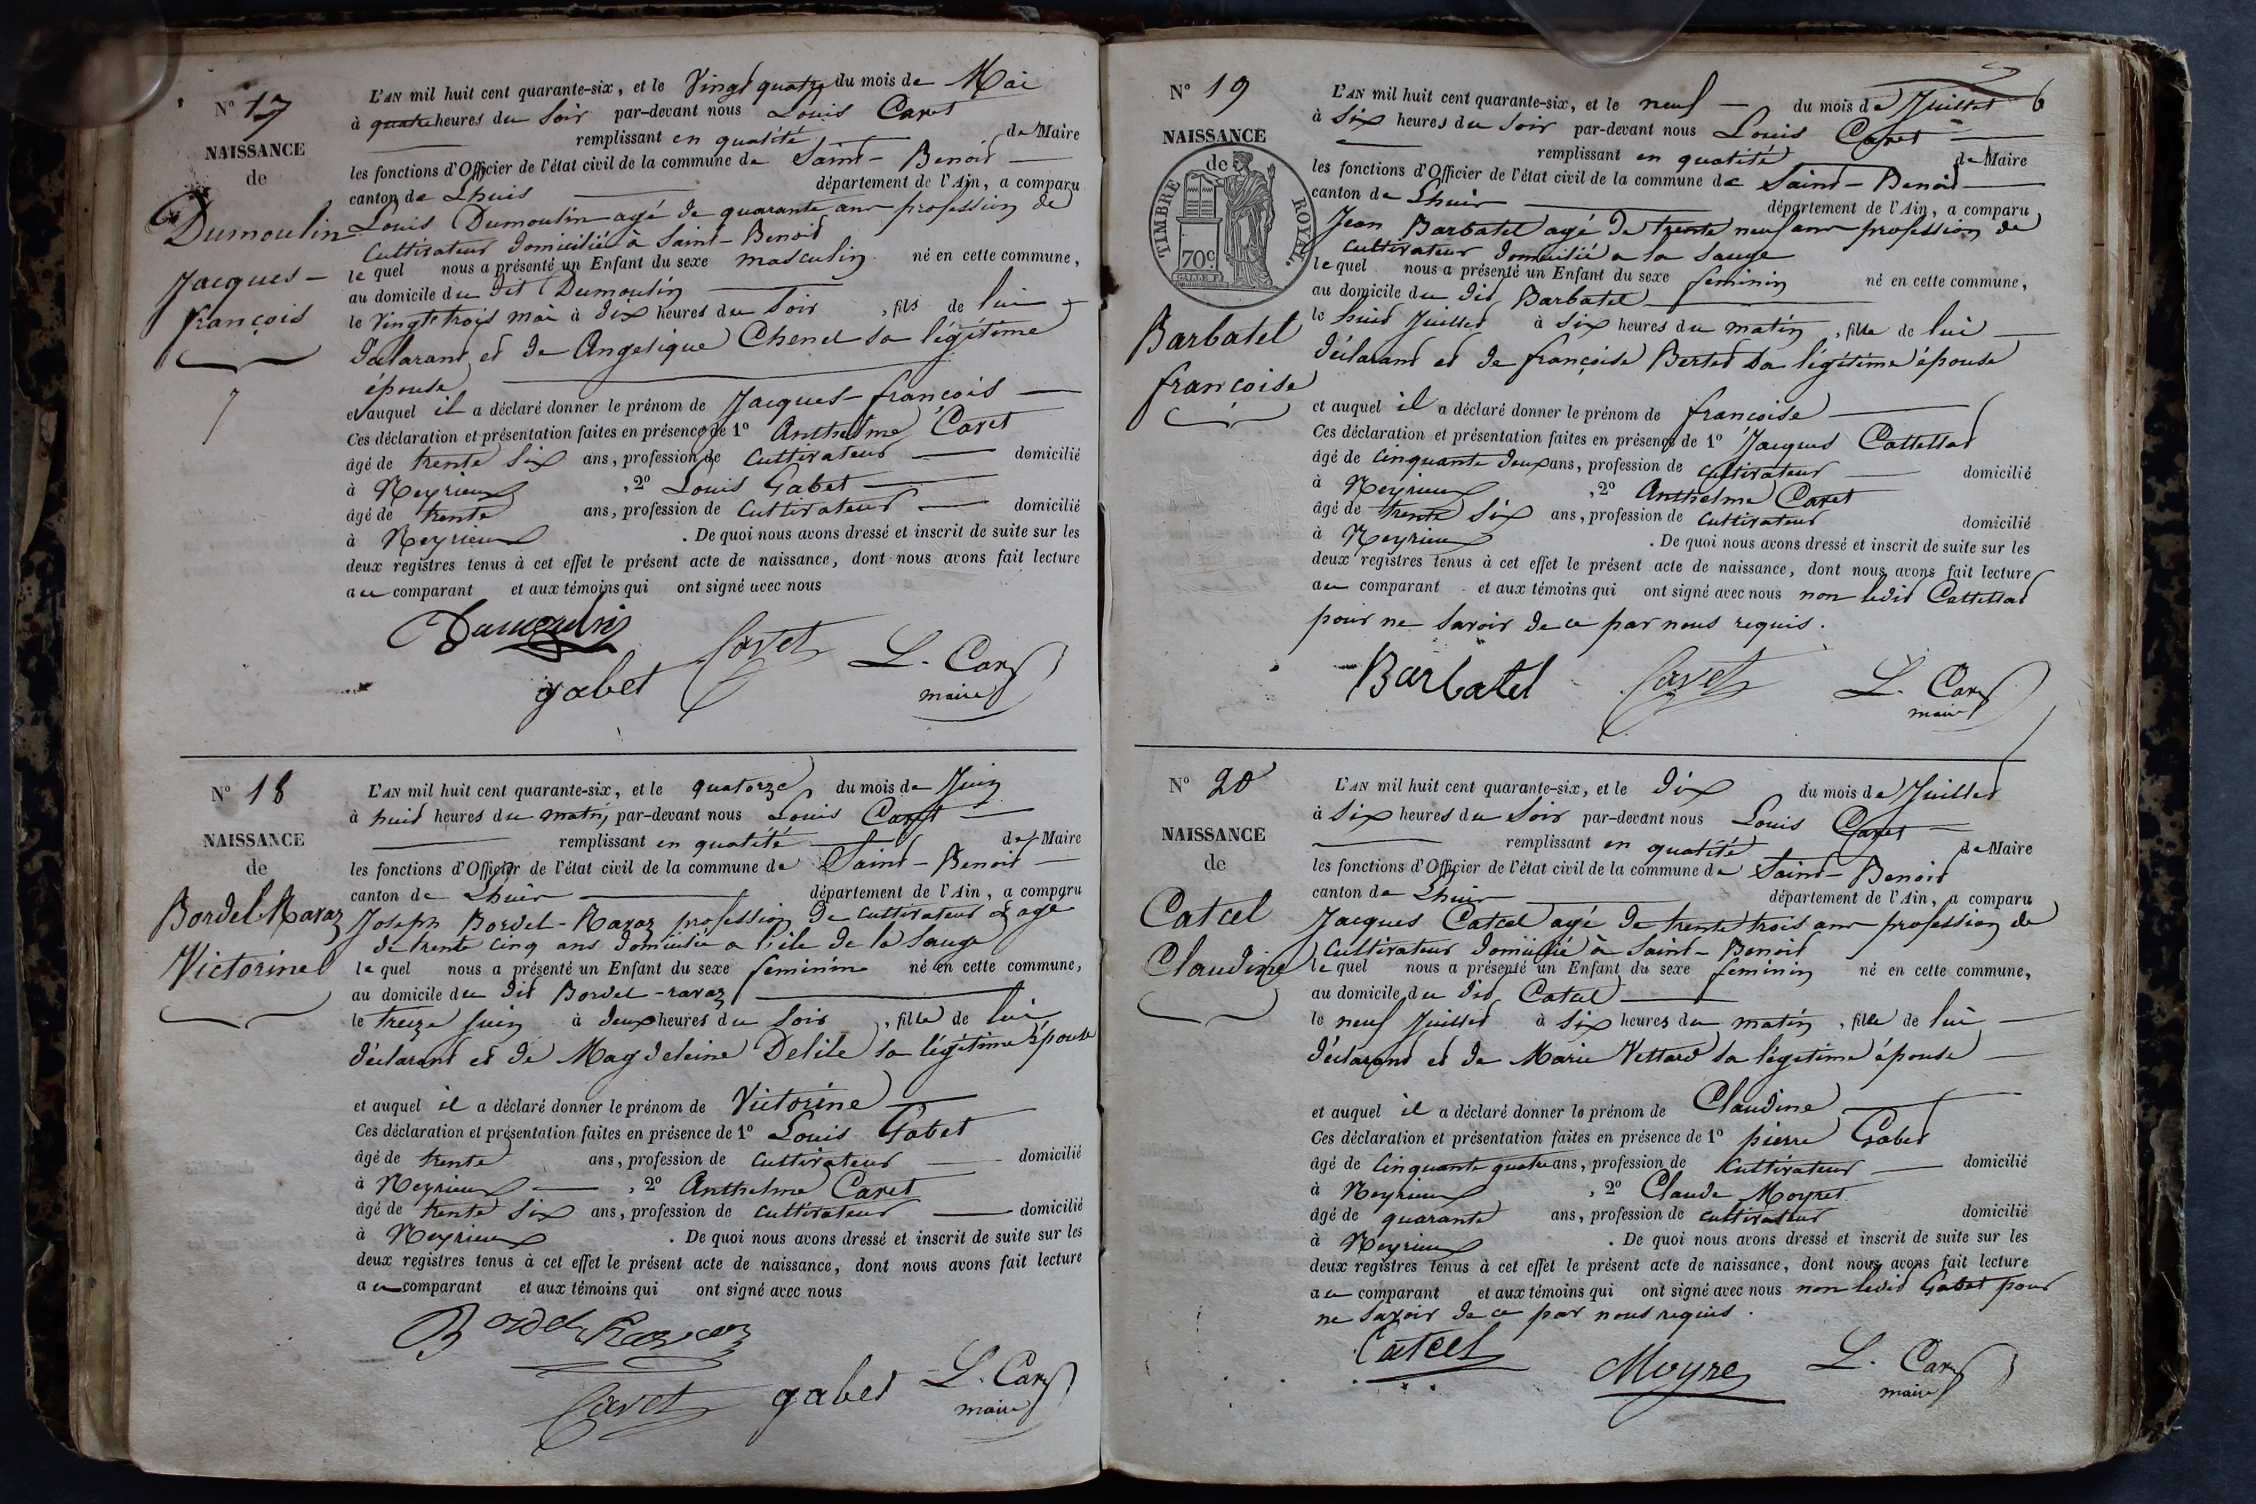 N° 17
NAISSANCE
de
Dumoulin
Jacques-
françois
L'AN mil huit cent quarante-six, et le Vingt quatre du mois de Mai
à quatre heures du Soir par-devant nous Louis Caret
remplissant en qualité de Maire
les fonctions d'Officier de l'état civil de la commune de Saint-Benoit
canton de Lhuis département de l'Ain, a comparu
Louis Dumoulin agé de quarante ans profession de
Cultivateur domicilié à Saint-Benoit
le quel nous a présenté un Enfant du sexe masculin né en cette commune,
au domicile du dit Dumoulin
le Vingt trois mai à dix heures du Soir, fils de lui
déclarant et de Angelique Chenel sa légitime
épouse
et auquel il a déclaré donner le prénom de Jacques-françois
Ces déclaration et présentation faites en présence de 1° Anthelme Caret
âgé de trente Six ans, profession de Cultivateur domicilié
à Neyrieux, 2° Louis Gabet
âgé de trente ans, profession de Cultivateur domicilié
à Neyrieux. De quoi nous avons dressé et inscrit de suite sur les
deux registres tenus à cet effet le présent acte de naissance, dont nous avons fait lecture
au comparant et aux témoins qui ont signé avec nous
Dumoulin
gabet Caret L. Caret
maire
N° 18
NAISSANCE
de
Bordel-Ravaz
Victorine
L'AN mil huit cent quarante-six, et le quatorze du mois de Juin
à huit heures du matin, par-devant nous Louis Caret
remplissant en qualité de Maire
les fonctions d'Officier de l'état civil de la commune de Saint-Benoit
canton de Lhuis département de l'Ain, a comparu
Joseph Bordel-Ravaz profession de cultivateur agé
de trente cinq ans domicilié a l'ile de la Sauge
le quel nous a présenté un Enfant du sexe feminin né en cette commune,
au domicile du dit Bordel-ravaz
le treize Juin à deux heures du Soir, fille de lui
déclarant et de Magdeleine Delile sa légitime épouse
et auquel il a déclaré donner le prénom de Victorine
Ces déclaration et présentation faites en présence de 1° Louis Gabet
âgé de trente ans, profession de Cultivateur domicilié
à Neyrieux, 2° Anthelme Caret
âgé de trente Six ans, profession de cultivateur domicilié
à Neyrieux. De quoi nous avons dressé et inscrit de suite sur les
deux registres tenus à cet effet le présent acte de naissance, dont nous avons fait lecture
au comparant et aux témoins qui ont signé avec nous
Bordel Ravaz
Caret gabet L. Caret
maire
6
N° 19
NAISSANCE
de
TIMBRE ROYAL
70c
Barbatel
françoise
L'AN mil huit cent quarante-six, et le neuf du mois de Juillet
à Six heures du Soir par-devant nous Louis Caret
remplissant en qualité de Maire
les fonctions d'Officier de l'état civil de la commune de Saint-Benoit
canton de Lhuis département de l'Ain, a comparu
Jean Barbatel agé de trente neuf ans profession de
cultivateur domicilié a la Sauge
le quel nous a présenté un Enfant du sexe feminin né en cette commune,
au domicile du dit Barbatel
le huit Juillet à Six heures du matin, fille de lui
déclarant et de françoise Bertet sa légitime épouse
et auquel il a déclaré donner le prénom de françoise
Ces déclaration et présentation faites en présence de 1° Jacques Cattellad
âgé de cinquante deux ans, profession de cultivateur domicilié
à Neyrieux, 2° Anthelme Caret
âgé de trente Six ans, profession de cultivateur domicilié
à Neyrieux. De quoi nous avons dressé et inscrit de suite sur les
deux registres tenus à cet effet le présent acte de naissance, dont nous avons fait lecture
au comparant et aux témoins qui ont signé avec nous non ledit Cattellad
pour ne Savoir de ce par nous requis.
Barbatel Caret L. Caret
maire
N° 20
NAISSANCE
de
Catcel
Claudine
L'AN mil huit cent quarante-six, et le dix du mois de Juillet
à Six heures du Soir par-devant nous Louis Caret
remplissant en qualité de Maire
les fonctions d'Officier de l'état civil de la commune de Saint-Benoit
canton de Lhuis département de l'Ain, a comparu
Jacques Catcel agé de trente trois ans profession de
Cultivateur domicilié à Saint-Benoit
le quel nous a présenté un Enfant du sexe feminin né en cette commune,
au domicile du dit Catcel
le neuf Juillet à Six heures du matin, fille de lui
déclarant et de Marie Vettard sa légitime épouse
et auquel il a déclaré donner le prénom de Claudine
Ces déclaration et présentation faites en présence de 1° pierre Gabet
âgé de Cinquante quatre ans, profession de Cultivateur domicilié
à Neyrieux, 2° Claude Moyret
âgé de quarante ans, profession de cultivateur domicilié
à Neyrieux. De quoi nous avons dressé et inscrit de suite sur les
deux registres tenus à cet effet le présent acte de naissance, dont nous avons fait lecture
au comparant et aux témoins qui ont signé avec nous non ledit Gabet pour
ne Savoir de ce par nous requis.
Catcel Moyret L. Caret
maire